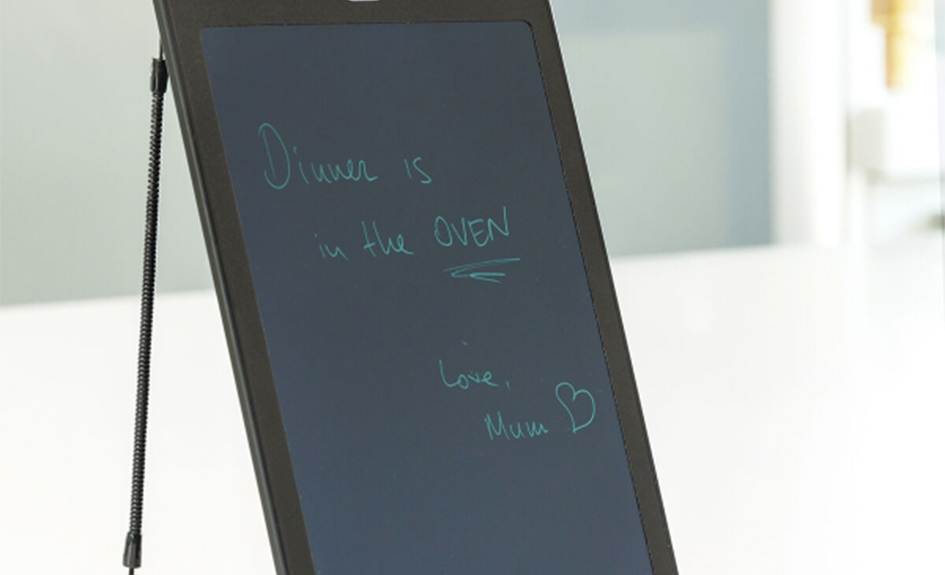 Dinner is
in the OVEN
Love,
Mum